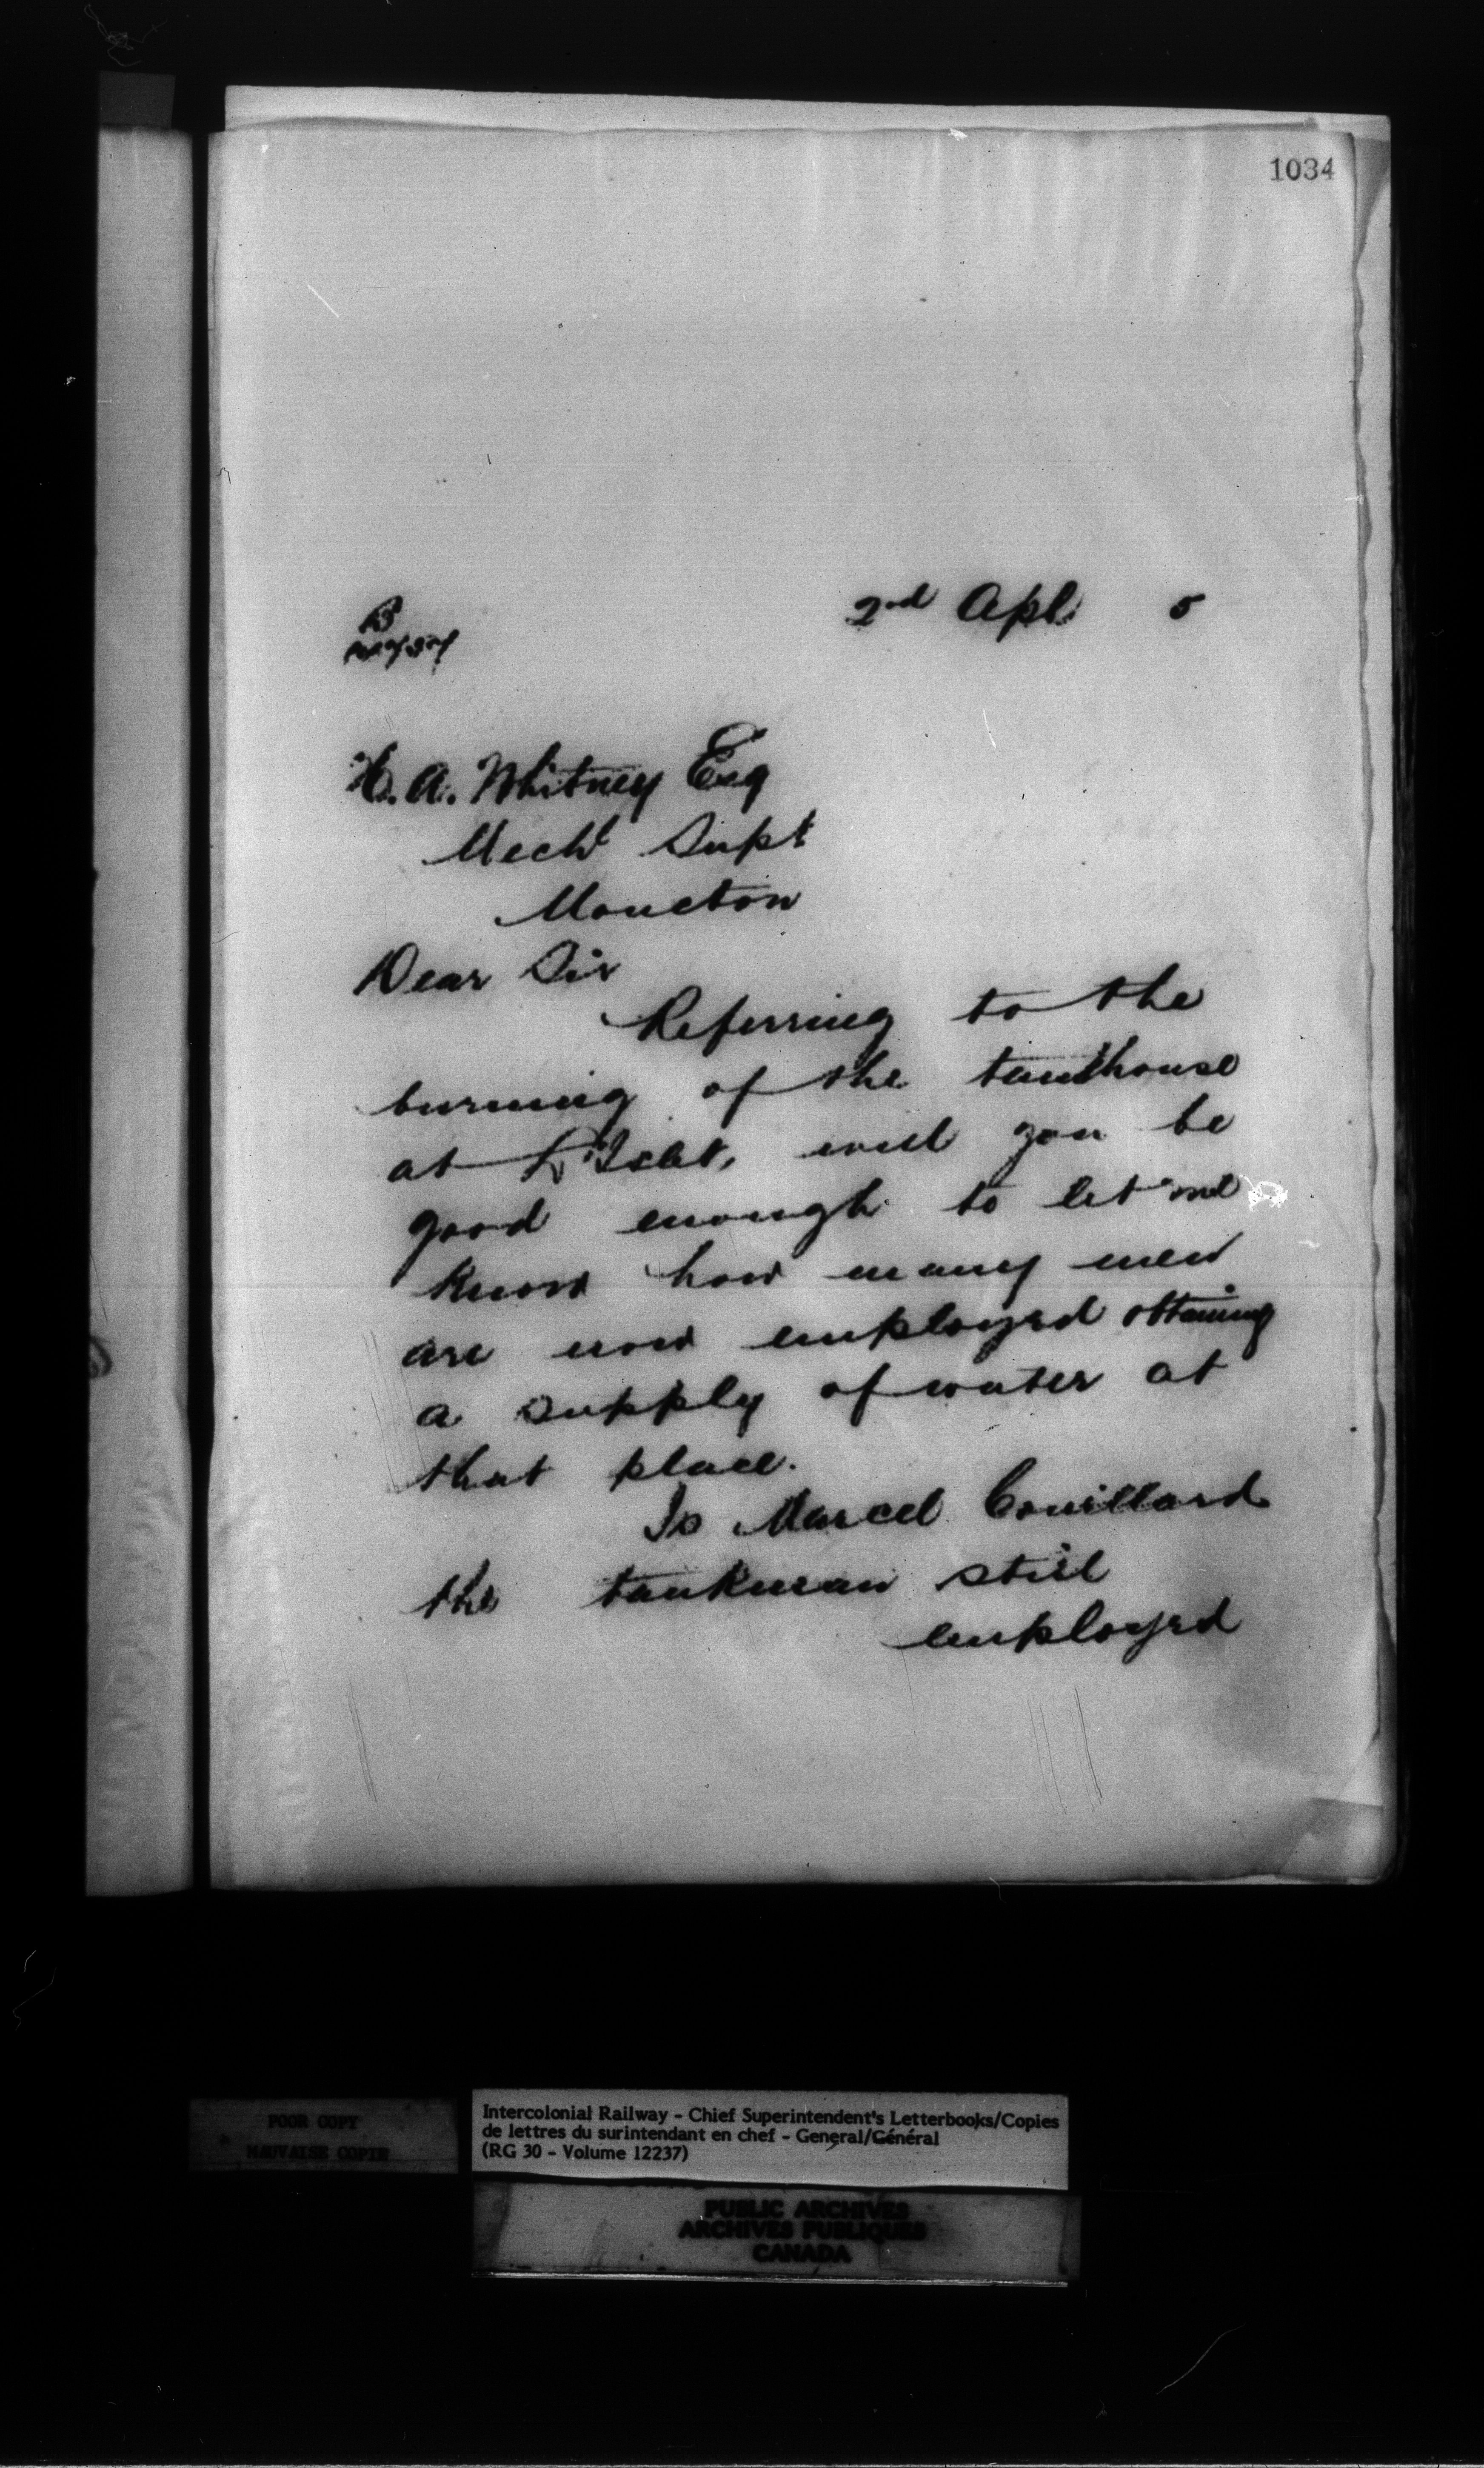 1034
2nd Apl. 5
B
H. A. Whitney Esq
Mechl Supt
Moncton
Dear Sir
Referring to the
burning of the tankhouse
at L'Islet, will you be
good enough to let me
know how many men
are now employed obtaining
a supply of water at
that place.
Is Marcel Couillard
the tankman still
employed
POOR COPY
MAUVAISE COPIE
Intercolonial Railway - Chief Superintendent's Letterbooks/Copies
de lettres du surintendant en chef - General/Général
(RG 30 - Volume 12237)
PUBLIC ARCHIVES
ARCHIVES PUBLIQUES
CANADA